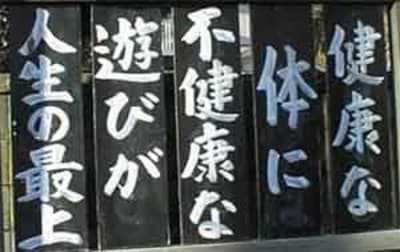 健康な
体に
不健康な
遊びが
人生の最上